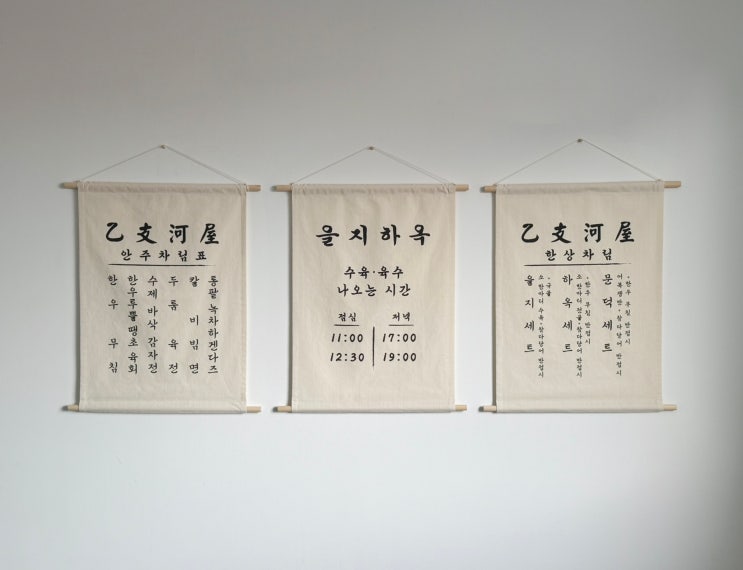 乙支河屋
안주차림표
한우무침
한우루뽈땡초육회
수제 바삭 감자전
두툼육전
칼비빔면
통팥 녹차하겐다즈
을지하옥
수육·육수
나오는 시간
점심 저녁
11:00 17:00
12:30 19:00
乙支河屋
한상차림
을지세트
소 한마디 수육·참다당어 반접시
·국물
하옥세트
소 한마디 전골·참다당어 반접시
·한우 무침 반접시
문덕세트
어복쟁반·참다당어 반접시
·한우 무침 반접시